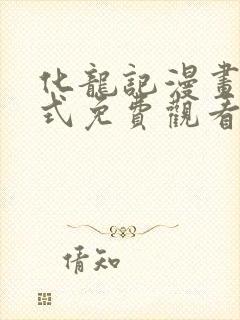 化龍記漫畫
式免費觀看
倩知